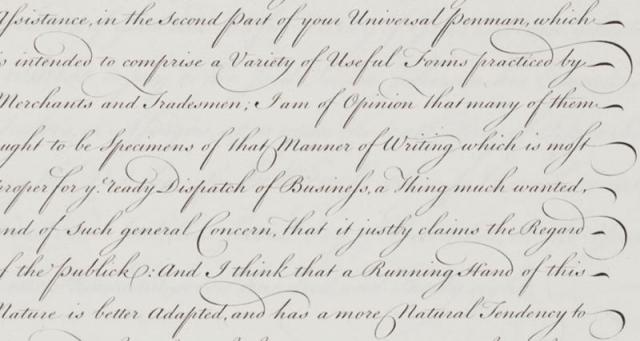 Aſsistance, in the Second Part of your Universal Penman, which
is intended to comprise a Variety of Useful Forms practiced by
Merchants and Tradesmen; I am of Opinion that many of them
ought to be Specimens of that Manner of Writing which is most
proper for yᵉ ready Dispatch of Busineſs, a Thing much wanted,
and of such general Concern, that it justly claims the Regard
of the Publick: And I think that a Running Hand of this
Nature is better Adapted, and has a more Natural Tendency to